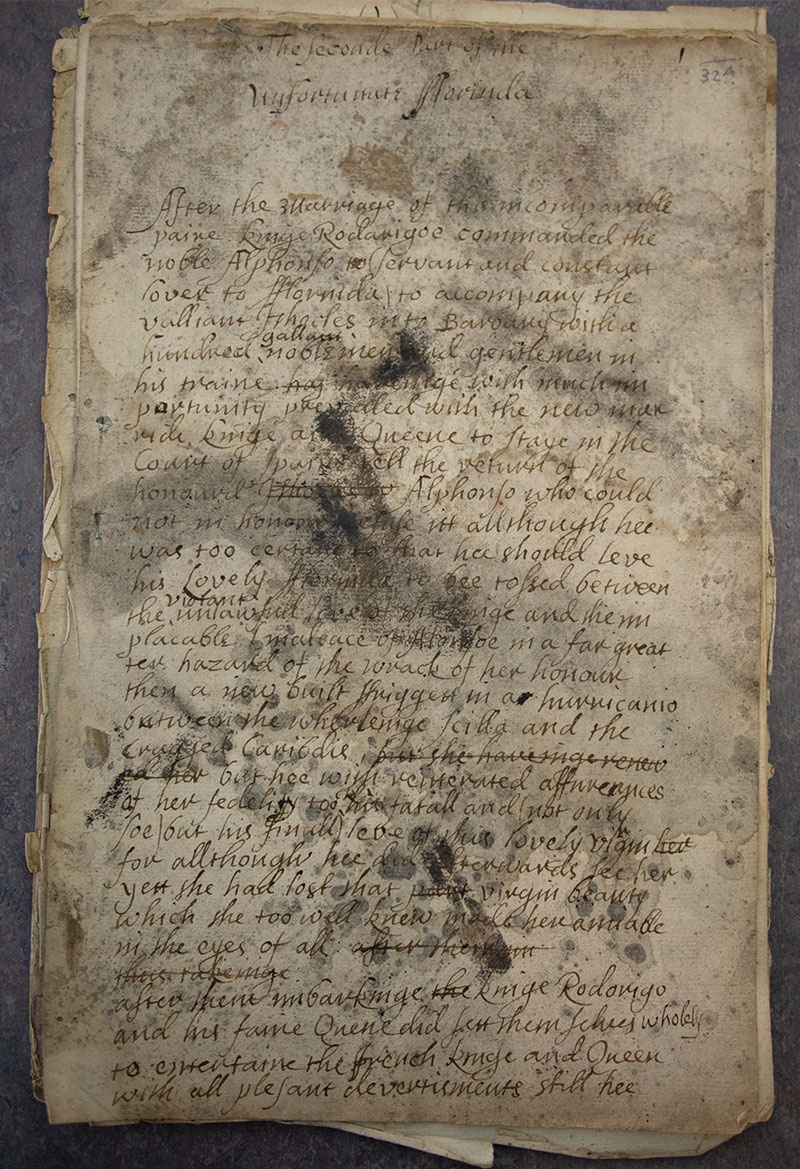 The seconde Part of the
32
Unfortunate fflorinda
After the Marriage of the incomparable
paire kinge Rodarigoe commanded the
noble Alphonso to (servant and constant
lover to fflorinda) to accompany the
valliant Ithocles in to Barbary with a
gallant
hundred noblemen and gentlemen in
his traine haveinge with much im
portunity prevailed with the new mar
ried kinge and Queene to staye in the
Court of spaine till the return of the
honourd Alphonso who could
not in honour refuse itt allthough hee
was too certane that hee should leve
his Lovely fflorinda to bee tossed between
violant
the unlawfull love of the kinge and the im
placable maleace of in a far great
ter hazard of the wrack of her honour
then a new built ffriggett in a hurricanio
between the wherleinge scilla and the
cragged Caribdis, but she haveinge renew
ed her but hee with reiterated assureances
of her fedelity took his fatall and (not only
soe) but his finall) leve of this lovely virgin her
for allthough hee did afterwards see her
yett she had lost that part virgin beauty
which she too well knew made her amiable
in the eyes of all after
this takeinge
after their imbarkinge the kinge Rodorigo
and his faire Quene did sett themselves wholely
to entertaine the french kinge and Queen
with all plesant devertisments still hee